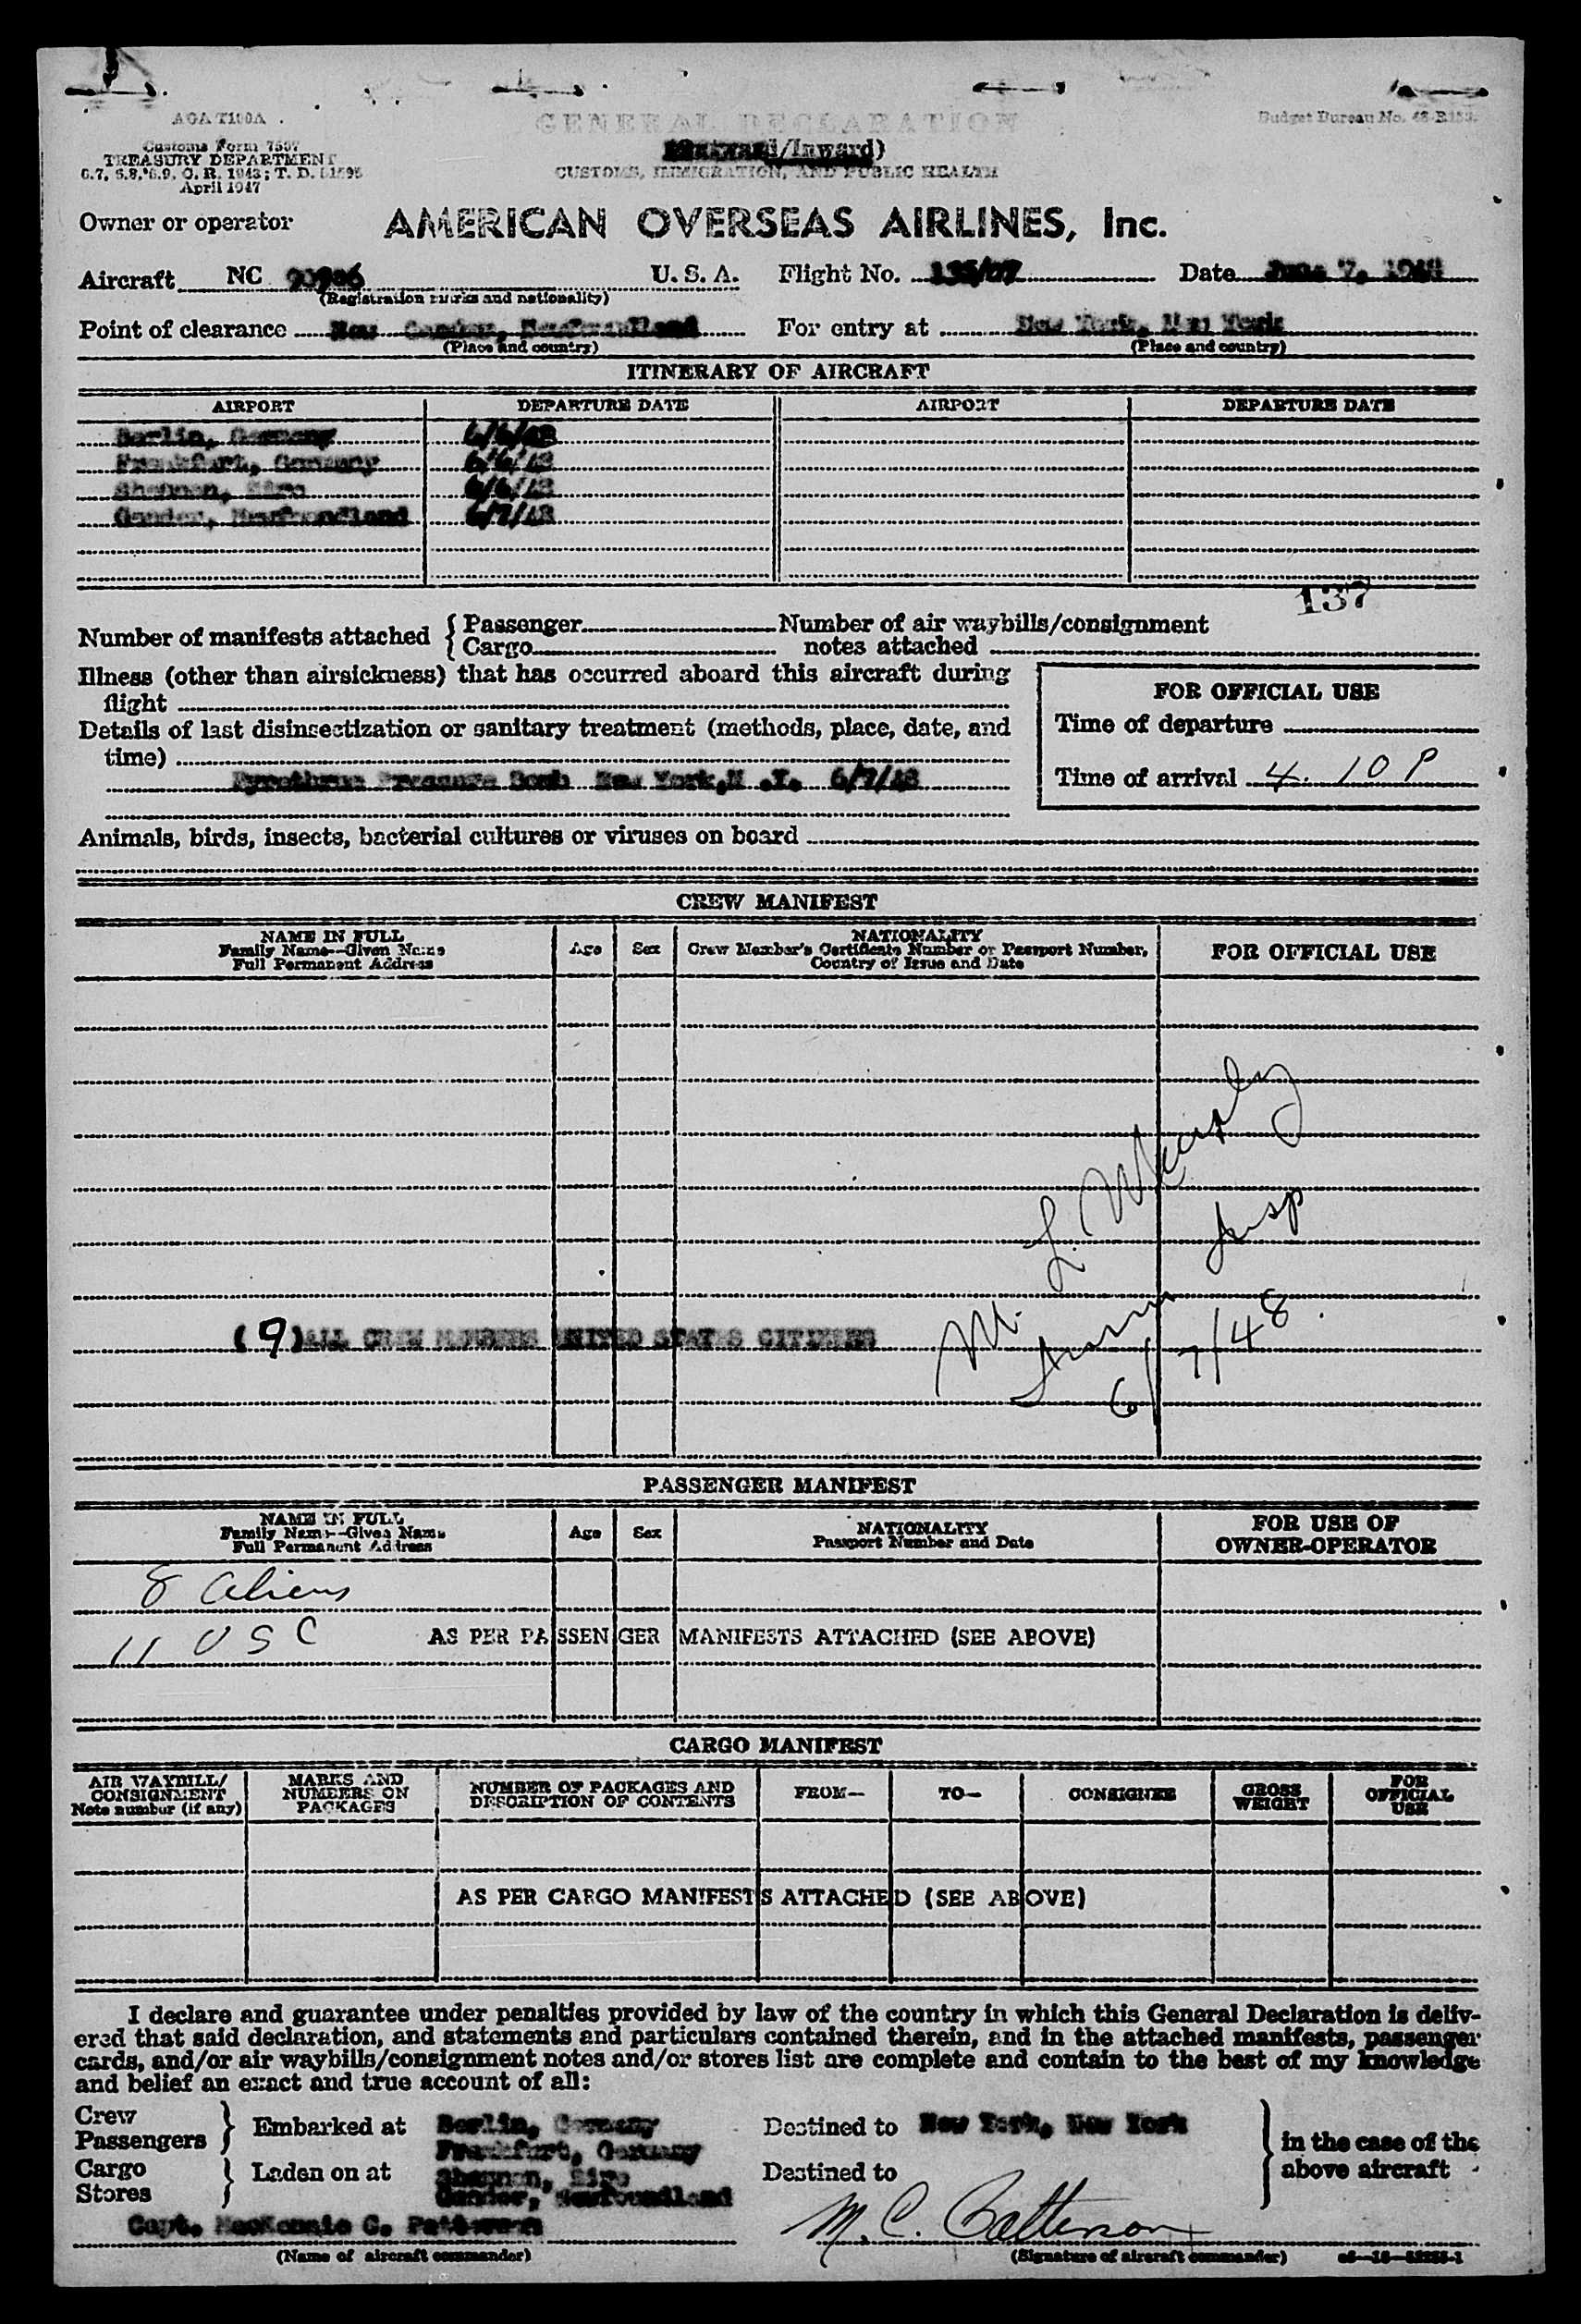 AOA T100A
Customs Form 7507
TREASURY DEPARTMENT
6.7, 6.8, 6.9, C. R. 1943; T. D. 51595
April 1947
GENERAL DECLARATION
(Outward/Inward)
CUSTOMS, IMMIGRATION, AND PUBLIC HEALTH
Budget Bureau No. 48-R133.
Owner or operator AMERICAN OVERSEAS AIRLINES, Inc.
Aircraft NC 90906 U. S. A. Flight No. Date June 7, 1948
(Registration marks and nationality)
Point of clearance Gander, Newfoundland For entry at New York, New York
(Place and country) (Place and country)
ITINERARY OF AIRCRAFT
AIRPORT DEPARTURE DATE AIRPORT DEPARTURE DATE
Berlin, Germany 6/6/48
Frankfurt, Germany 6/6/48
Shannon, Eire 6/6/48
Gander, Newfoundland 6/7/48
137
Number of manifests attached { Passenger Number of air waybills/consignment
Cargo notes attached
Illness (other than airsickness) that has occurred aboard this aircraft during
flight
Details of last disinsectization or sanitary treatment (methods, place, date, and
time)
Pyrethrum Pressure Bomb New York, N .Y. 6/7/48
FOR OFFICIAL USE
Time of departure
Time of arrival 4. 10 P
Animals, birds, insects, bacterial cultures or viruses on board
CREW MANIFEST
NAME IN FULL
Family Name--Given Name
Full Permanent Address
Age Sex
NATIONALITY
Crew Member's Certificate Number or Passport Number,
Country of Issue and Date
FOR OFFICIAL USE
M. L.
Insp
6/7/48.
(9) ALL CREW MEMBERS UNITED STATES CITIZENS
PASSENGER MANIFEST
NAME IN FULL
Family Name--Given Name
Full Permanent Address
Age Sex
NATIONALITY
Passport Number and Date
FOR USE OF
OWNER-OPERATOR
8 Aliens
11 U S C AS PER PASSENGER MANIFESTS ATTACHED (SEE ABOVE)
CARGO MANIFEST
AIR WAYBILL/
CONSIGNMENT
Note number (if any)
MARKS AND
NUMBERS ON
PACKAGES
NUMBER OF PACKAGES AND
DESCRIPTION OF CONTENTS
FROM— TO— CONSIGNEE
GROSS
WEIGHT
FOR
OFFICIAL
USE
AS PER CARGO MANIFESTS ATTACHED (SEE ABOVE)
I declare and guarantee under penalties provided by law of the country in which this General Declaration is deliv-
ered that said declaration, and statements and particulars contained therein, and in the attached manifests, passenger
cards, and/or air waybills/consignment notes and/or stores list are complete and contain to the best of my knowledge
and belief an exact and true account of all:
Crew
Passengers } Embarked at Berlin, Germany Destined to New York, New York
Frankfurt, Germany
Cargo
Stores } Laden on at Shannon, Eire Destined to
Gander, Newfoundland
} in the case of the
above aircraft
Capt. MacKennie C. Patterson M. C. Patterson
(Name of aircraft commander) (Signature of aircraft commander)